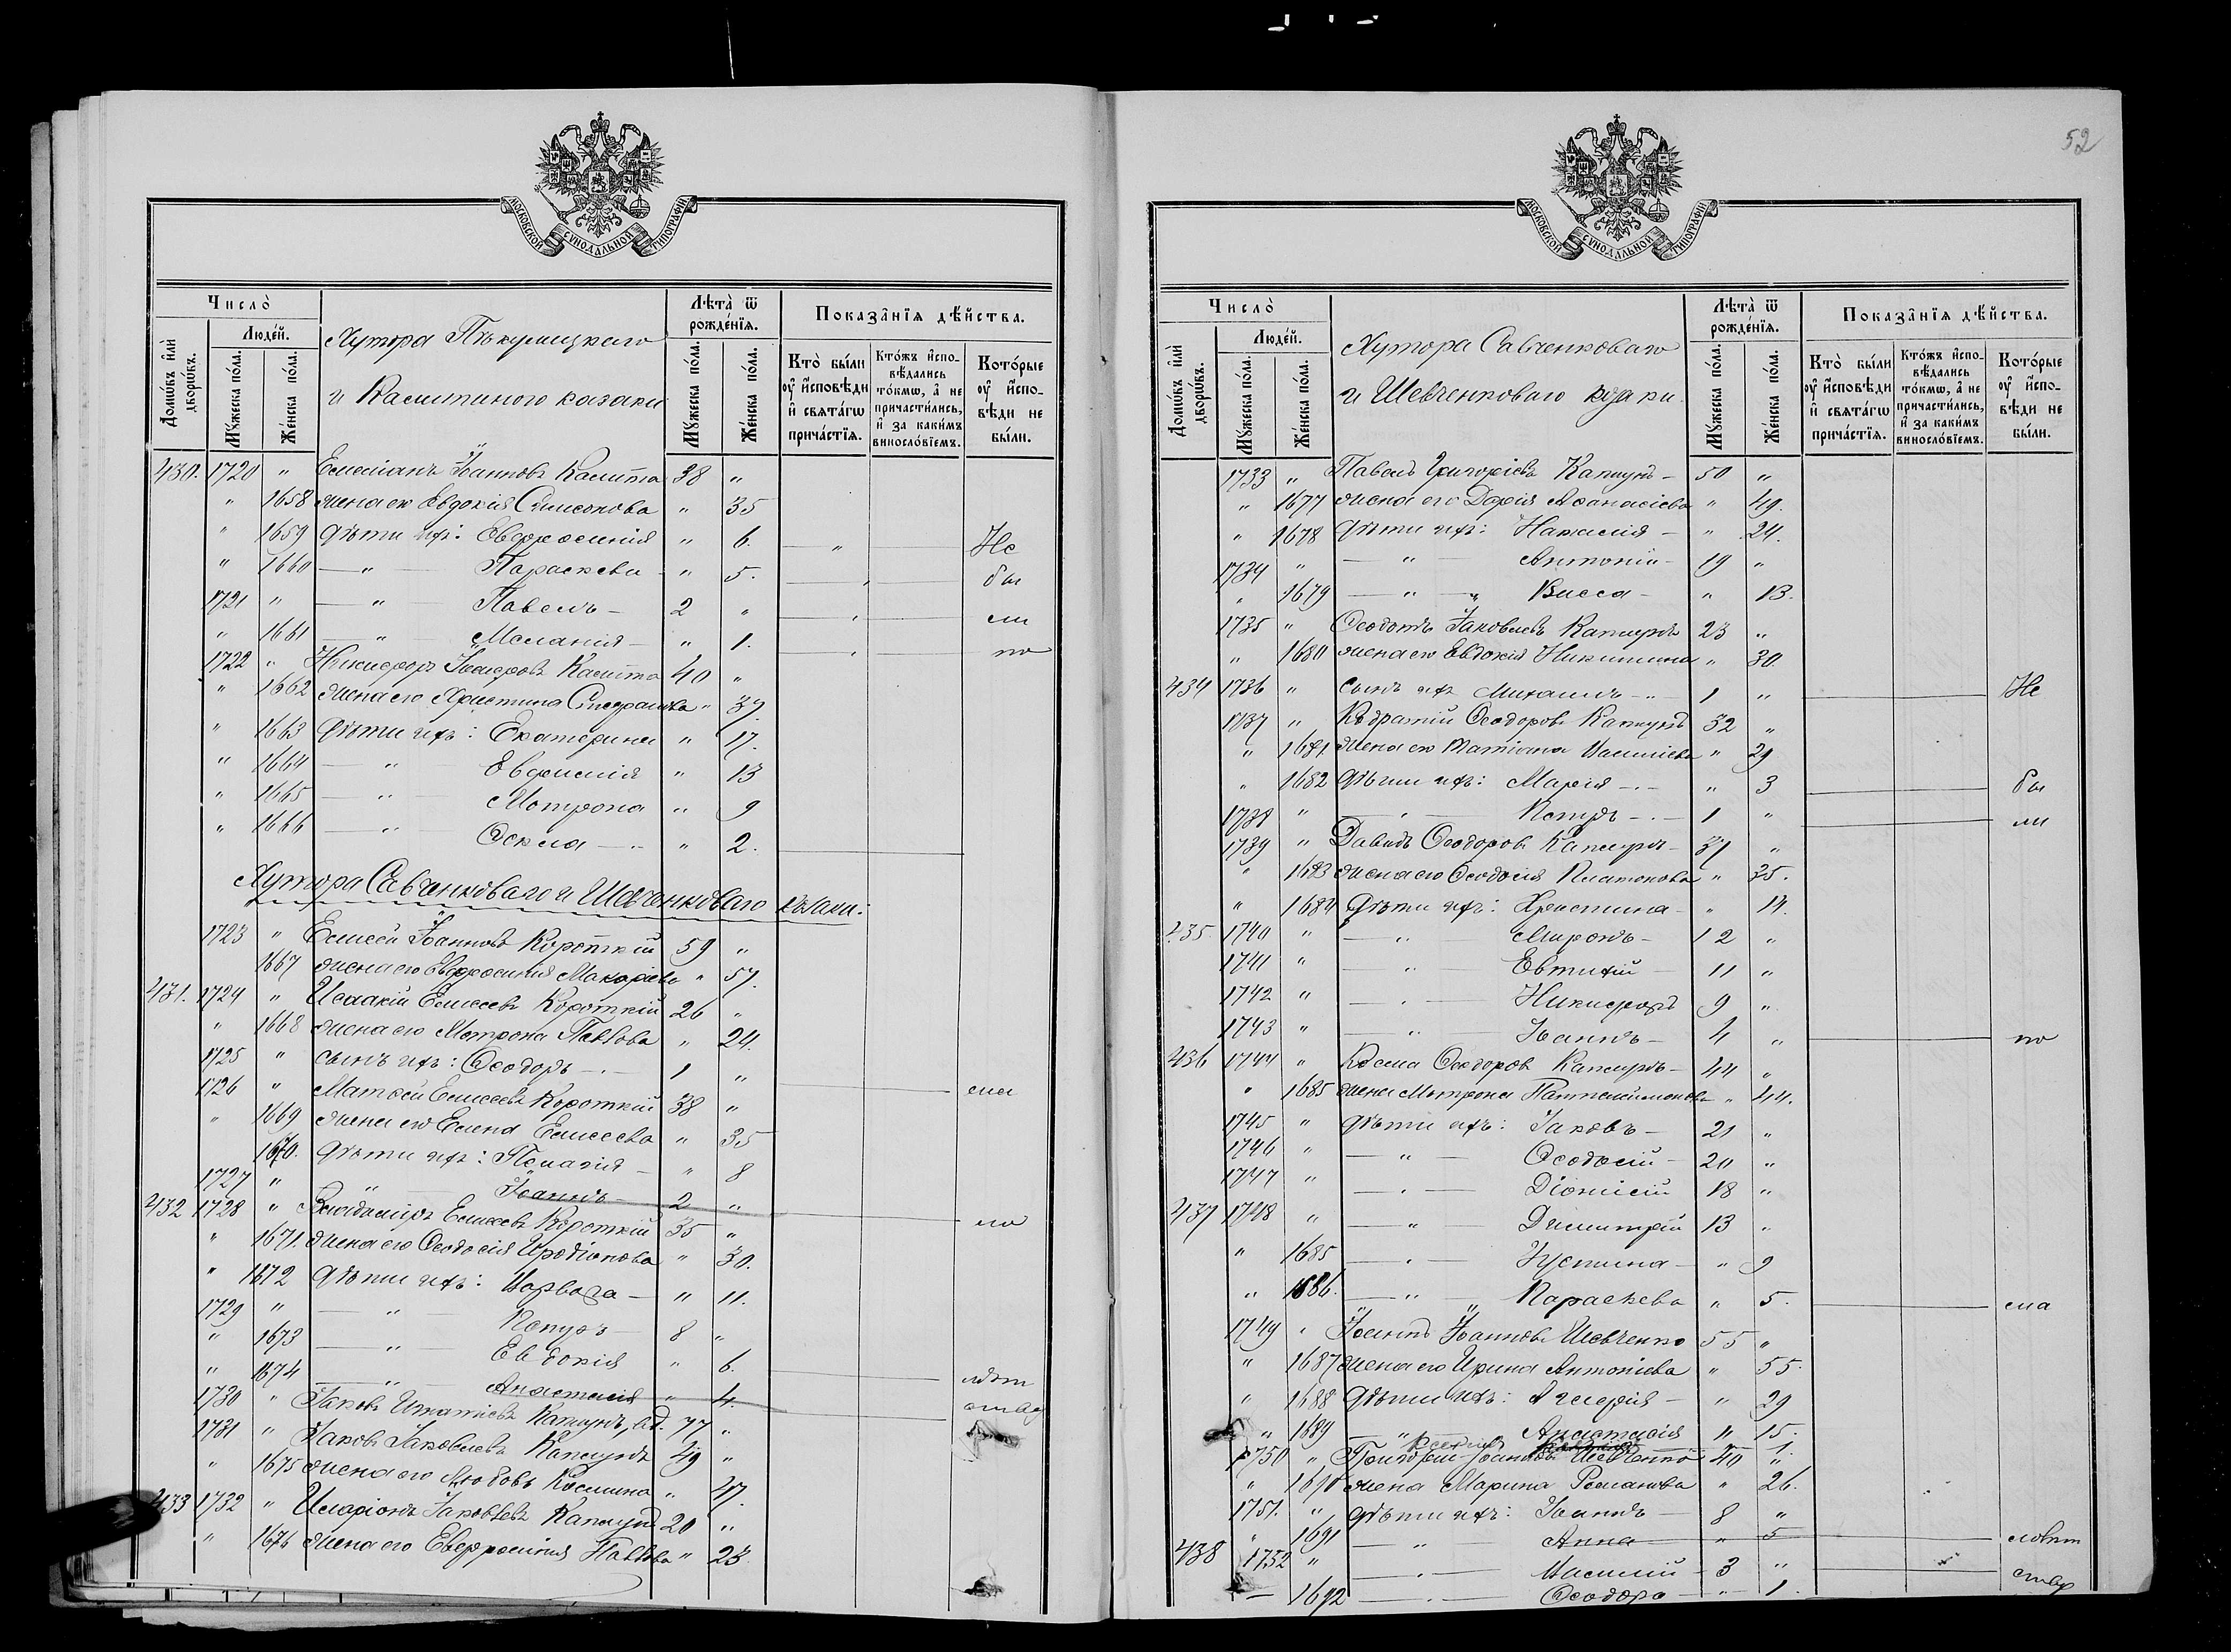 52
МОСКОВСКОЙ СѴНОДАЛЬНОЙ ТИПОГРАФІИ
Число̀
Люде́й.
Домѡ́въ и҆лѝ дворѡ́въ.
Мꙋ́жеска по́ла.
Же́нска по́ла.
Хутора
и Калитиного казаки
Лѣта̀ ѿ рожде́нїѧ.
Мꙋ́жеска по́ла.
Же́нска по́ла.
Показа̑нїѧ дѣ́йства.
Кто̀ бы́ли ᲂу҆ и҆сповѣди и҆ свѧта́гѡ прича́стїѧ.
Кто́жъ и҆сповѣ́дались то́кмѡ, а҆ не причасти́лись, и҆ за каки́мъ винословїемъ.
Кото́рые ᲂу҆ и҆сповѣди не бы́ли.
430. 1720 " Емеліанъ Іоанновъ Калита 38 "
" 1658 жена ея Евдокія Симеонова " 35
" 1659 дѣти ихъ: Евфросинія " 6. Не
" 1660 — " — Параскева " 5. бы
1721 " — " — Павелъ 2 " ли
" 1661 — " — Меланія " 1. по
1722 " Никифоръ Калита 40 "
" 1662 жена его Христина " 37.
" 1663 дѣти ихъ: Екатерина " 17.
" 1664 — " — Евфимія " 13
" 1665 — " — Мотрона " 9
" 1666 — " — Ѳекла " 2.
Хутора Савченковаго и Шевченковаго козаки:
1723 " Елисей Іоанновъ Короткій 59 "
1667 жена его Евфросинія Макаріева " 57.
431. 1724 " Исаакій Елисеевъ Короткій 26 "
" 1668 жена его Мотрона Павлова " 24.
1725 " сынъ ихъ: Ѳеодоръ 1 "
1726 " Матѳей Елисеевъ Короткій 38 "
" 1669 жена его Елена Елисеева " 35
1670. дѣти ихъ: Пелагія " 8
1727 " " Іоаннъ 2 "
432 1728 " Владиміръ Елисеевъ Короткій 35 "
" 1671. жена его Ѳеодосія Иродіонова " 30.
" 1672 дѣти ихъ: Варвара " 11.
1729 " — " — Петръ 8 "
" 1673 — " — Евдокія " 6.
" 1674 — " — Анастасія " 4.
1730 " Іаковъ Игнатіевъ Капшукъ, вд. 77 "
1731 " Іаковъ Іаковлевъ Капшукъ 49 "
" 1675 жена его Любовь Космина " 47.
433 1732 " Иларіонъ Іаковлевъ Капшукъ 20 "
" 1676 жена его Евфросинія Павлова " 23
МОСКОВСКОЙ СѴНОДАЛЬНОЙ ТИПОГРАФІИ
Число̀
Люде́й.
Домѡ́въ и҆лѝ дворѡ́въ.
Мꙋ́жеска по́ла.
Же́нска по́ла.
Хутора Савченковаго
и Шевченковаго
Лѣта̀ ѿ рожде́нїѧ.
Мꙋ́жеска по́ла.
Же́нска по́ла.
Показа̑нїѧ дѣ́йства.
Кто̀ бы́ли ᲂу҆ и҆сповѣди и҆ свѧта́гѡ прича́стїѧ.
Кто́жъ и҆сповѣ́дались то́кмѡ, а҆ не причасти́лись, и҆ за каки́мъ винословїемъ.
Кото́рые ᲂу҆ и҆сповѣди не бы́ли.
1733 " Павелъ Григоріевъ Капшукъ 50 "
" 1677 жена его Дарія Аѳанасіева " 49.
" 1678 дѣти ихъ: Наталія " 24.
1734 " — " — Антоній 19 "
" 1679 — " — Васса " 13.
1735 " Ѳеодотъ Іаковлевъ Капшукъ 23 "
" 1680 жена его Евдокія Никитина " 30
434 1736 " сынъ ихъ Михаилъ 1 " Не
1737 " Кодратій Ѳеодоровъ Капшукъ 32 "
" 1681. жена ея Татіана Василіева " 29
" 1682 дѣти ихъ: Марія " 3 бы
1738 " — " — Петръ 1 " ли
1739 " Давидъ Ѳеодоровъ Капшукъ 37 "
" 1683 жена его Ѳеодосія Платонова " 35.
" 1684 дѣти ихъ: Христина " 14.
435. 1740 " — " — Миронъ 12 "
1741 " — " — Евтихій 11 "
1742 " — " — Никифоръ 9 "
1743 " — " — Іоаннъ 4 " по
436 1744 " Косма Ѳеодоровъ Капшукъ 44 "
" 1685 жена Мотрона Пантелиимонова " 44.
1745 " дѣти ихъ: Іаковъ 21 "
1746 " — " — Ѳеодосій 20 "
1747 " — " — Діонисій 18 "
437 1748 " — " — Димитрій 13 "
" 1685 — " — Іустина " 9
" 1686. — " — Параскева " 5.
1749 " Іоаннъ Іоанновъ Шевченко 55 "
" 1687 жена его Ирина Антоніева " 55.
" 1688 дѣти ихъ: Гликерія " 29
" 1689 " Анастасія " 15.
1750 " Григорій Іоанновъ Шевченко 40 "
" 1690 жена Марина Романова " 26.
1751. " дѣти ихъ: Іоаннъ 8 "
" 1691 — " — Анна " 5
438 1752 " — " — Василій 3 "
— 1692 — " — Ѳеодора " 1.